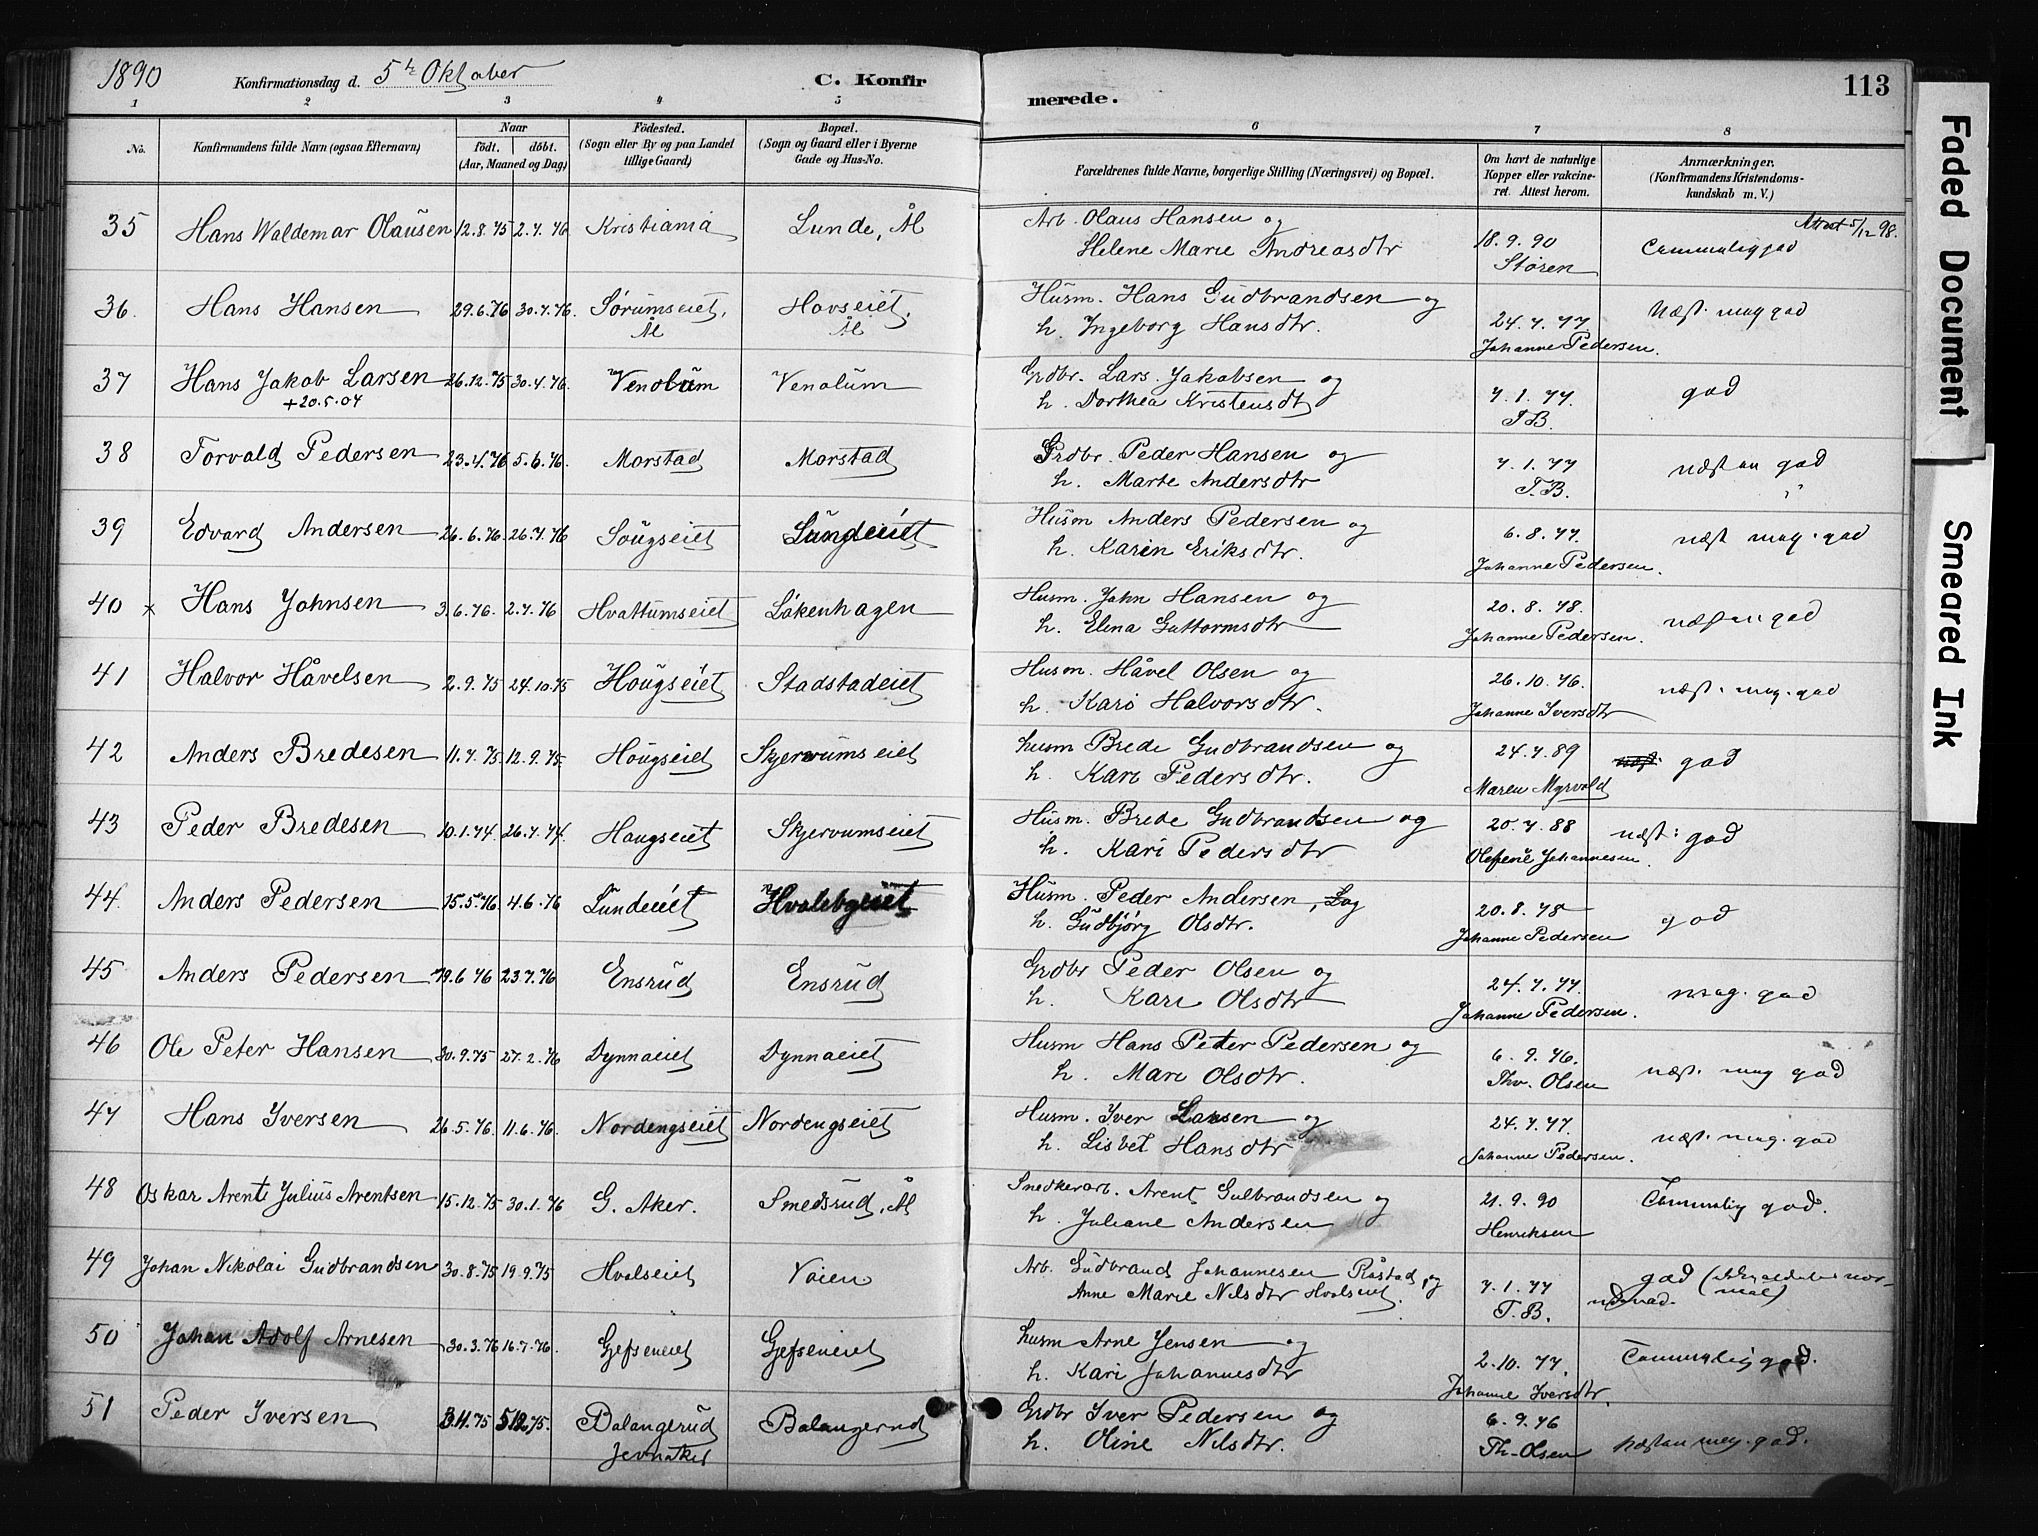 1890 Konfirmationsdag d. 5te Oktober C. Konfirmerede. 113
1 2 3 4 5 6 7 8
No. Konfirmandens fulde Navn (ogsaa Efternavn) Naar født. døbt. (Aar, Maaned og Dag) Fødested. (Sogn eller By og paa Landet tillige Gaard) Bopæl. (Sogn og Gaard eller i Byerne Gade og Hus-No. Forældrenes fulde Navne, borgerlige Stilling (Næringsvei) og Bopæl. Om havt de naturlige Kopper eller vakcineret. Attest herom. Anmærkninger. (Konfirmandens Kristendomskundskab m. V.)
35 Hans Waldemar Olausen 12.8.75 2.7.76 Kristiania Lunde, Ål Arb. Olaus Hansen og Attest 5/12 98.
Helene Marie Andreasdtr 18.9.90 Støren Temmelig god
36. Hans Hansen 29.6.76 30.7.76. Sørumseiet, Ål Hovseiet, Ål Husm. Hans Gudbrandsen og
h. Ingeborg Hansdtr. 24.7.77. Johanne Pedersen. Næst. meg god
37 Hans Jakob Larsen 26.12.75 30.4.76. Venolum Venolum Grdbr. Lars Jakobsen og
+20.5.04 h. Dorthea Kristensdt 7.1.77. T.B. god
38 Torvald Pedersen 23.4.76 5.6.76. Morstad Morstad Grdbr. Peder Hansen og
h. Marte Andersdtr 7.1.77 T.B. næsten god
39 Edvard Andersen 26.6.76 26.7.76 Sougseiet Lundeeiet Husm Anders Pedersen og
h. Karen Eriksdtr. 6.8.77. Johanne Pedersen. næst meg. god
40 x Hans Johnsen 3.6.76. 2.7.76 Hvattumseiet Løkenhagen Husm. John Hansen og
h. Elena Guttormsdtr 20.8.78. Johanne Pedersen. næsten god
41 Halvor Håvelsen 2.9.75 24.10.75 Hougseiet Stadstadeiet Husm. Håvel Olsen og
h. Kari Halvorsdtr. 26.10.76. Johanne Iversdtr næst. meg. god
42 Anders Bredesen 11.7.75 12.9.75. Hougseiet Skjervumseiet husm Brede Gudbrandsen og
h. Kari Pedersdtr. 24.7.89 Maren Myrvold god
43 Peder Bredesen 10.1.74. 26.7.74. Haugseiet Skjervumseiet Husm. Brede Gudbrandsen og
h. Kari Pedersdtr 20.7.88 Johannesen næst: god
44. Anders Pedersen 15.5.76. 4.6.76 Lundeeiet Hvalebyeiet Husm. Peder Andersen, og
h. Gudbjørg Olsdtr. 20.8.78 Johanne Pedersen god
45 Anders Pedersen 19.6 76 23.7.76 Ensrud Ensrud Grdbr Peder Olsen og
h. Kari Olsdtr 24.7.77. Johanne Pedersen. meg. god
46 Ole Peter Hansen 30.9.75 27.2.76 Dynnaeiet Dynnaeiet Husm Hans Peter Pedersen og
h. Mari Olsdtr. 6.9.76. Thv. Olsen næst. meg god
47 Hans Iversen 26.5.76. 11.6.76. Nordengseiet Nordengseiet Husm. Iver Larsen og
h. Lisbet Hansdtr 24.7.77. Johanne Pedersen. næst. meg. god
48 Oskar Arent Julius Arentsen 15.12.75 30.1.76 G. Aker. Smedsrud, Ål Snedkerarb. Arent Gulbrandsen og
h. Juliane Andersen 21.9.90 Henriksen Temmelig god.
49 Johan Nikolai Gudbrandsen 30.8.75 19.9.75 Hvalseiet Vøien Arb. Gudbrand Johannesen Råstad, og
Anne Marie Nilsdtr Hvalseiet. 7.1.77 T.B. god
50 Johan Adolf Arnesen 30.3.76 16.7.76. Gjefseneiet Gjefseneiet husm Arne Jensen og
h. Kari Johannesdtr 2.10.77 Johanne Iversdtr. Temmelig god.
51 Peder Iversen 3.11.75 5.12.75. Balangerud Jevnaker Balangerud Grdbr Iver Pedersen og
h. Oline Nilsdtr. 6.9.76 Th. Olsen næsten meg. god.
Faded Document
Smeared Ink